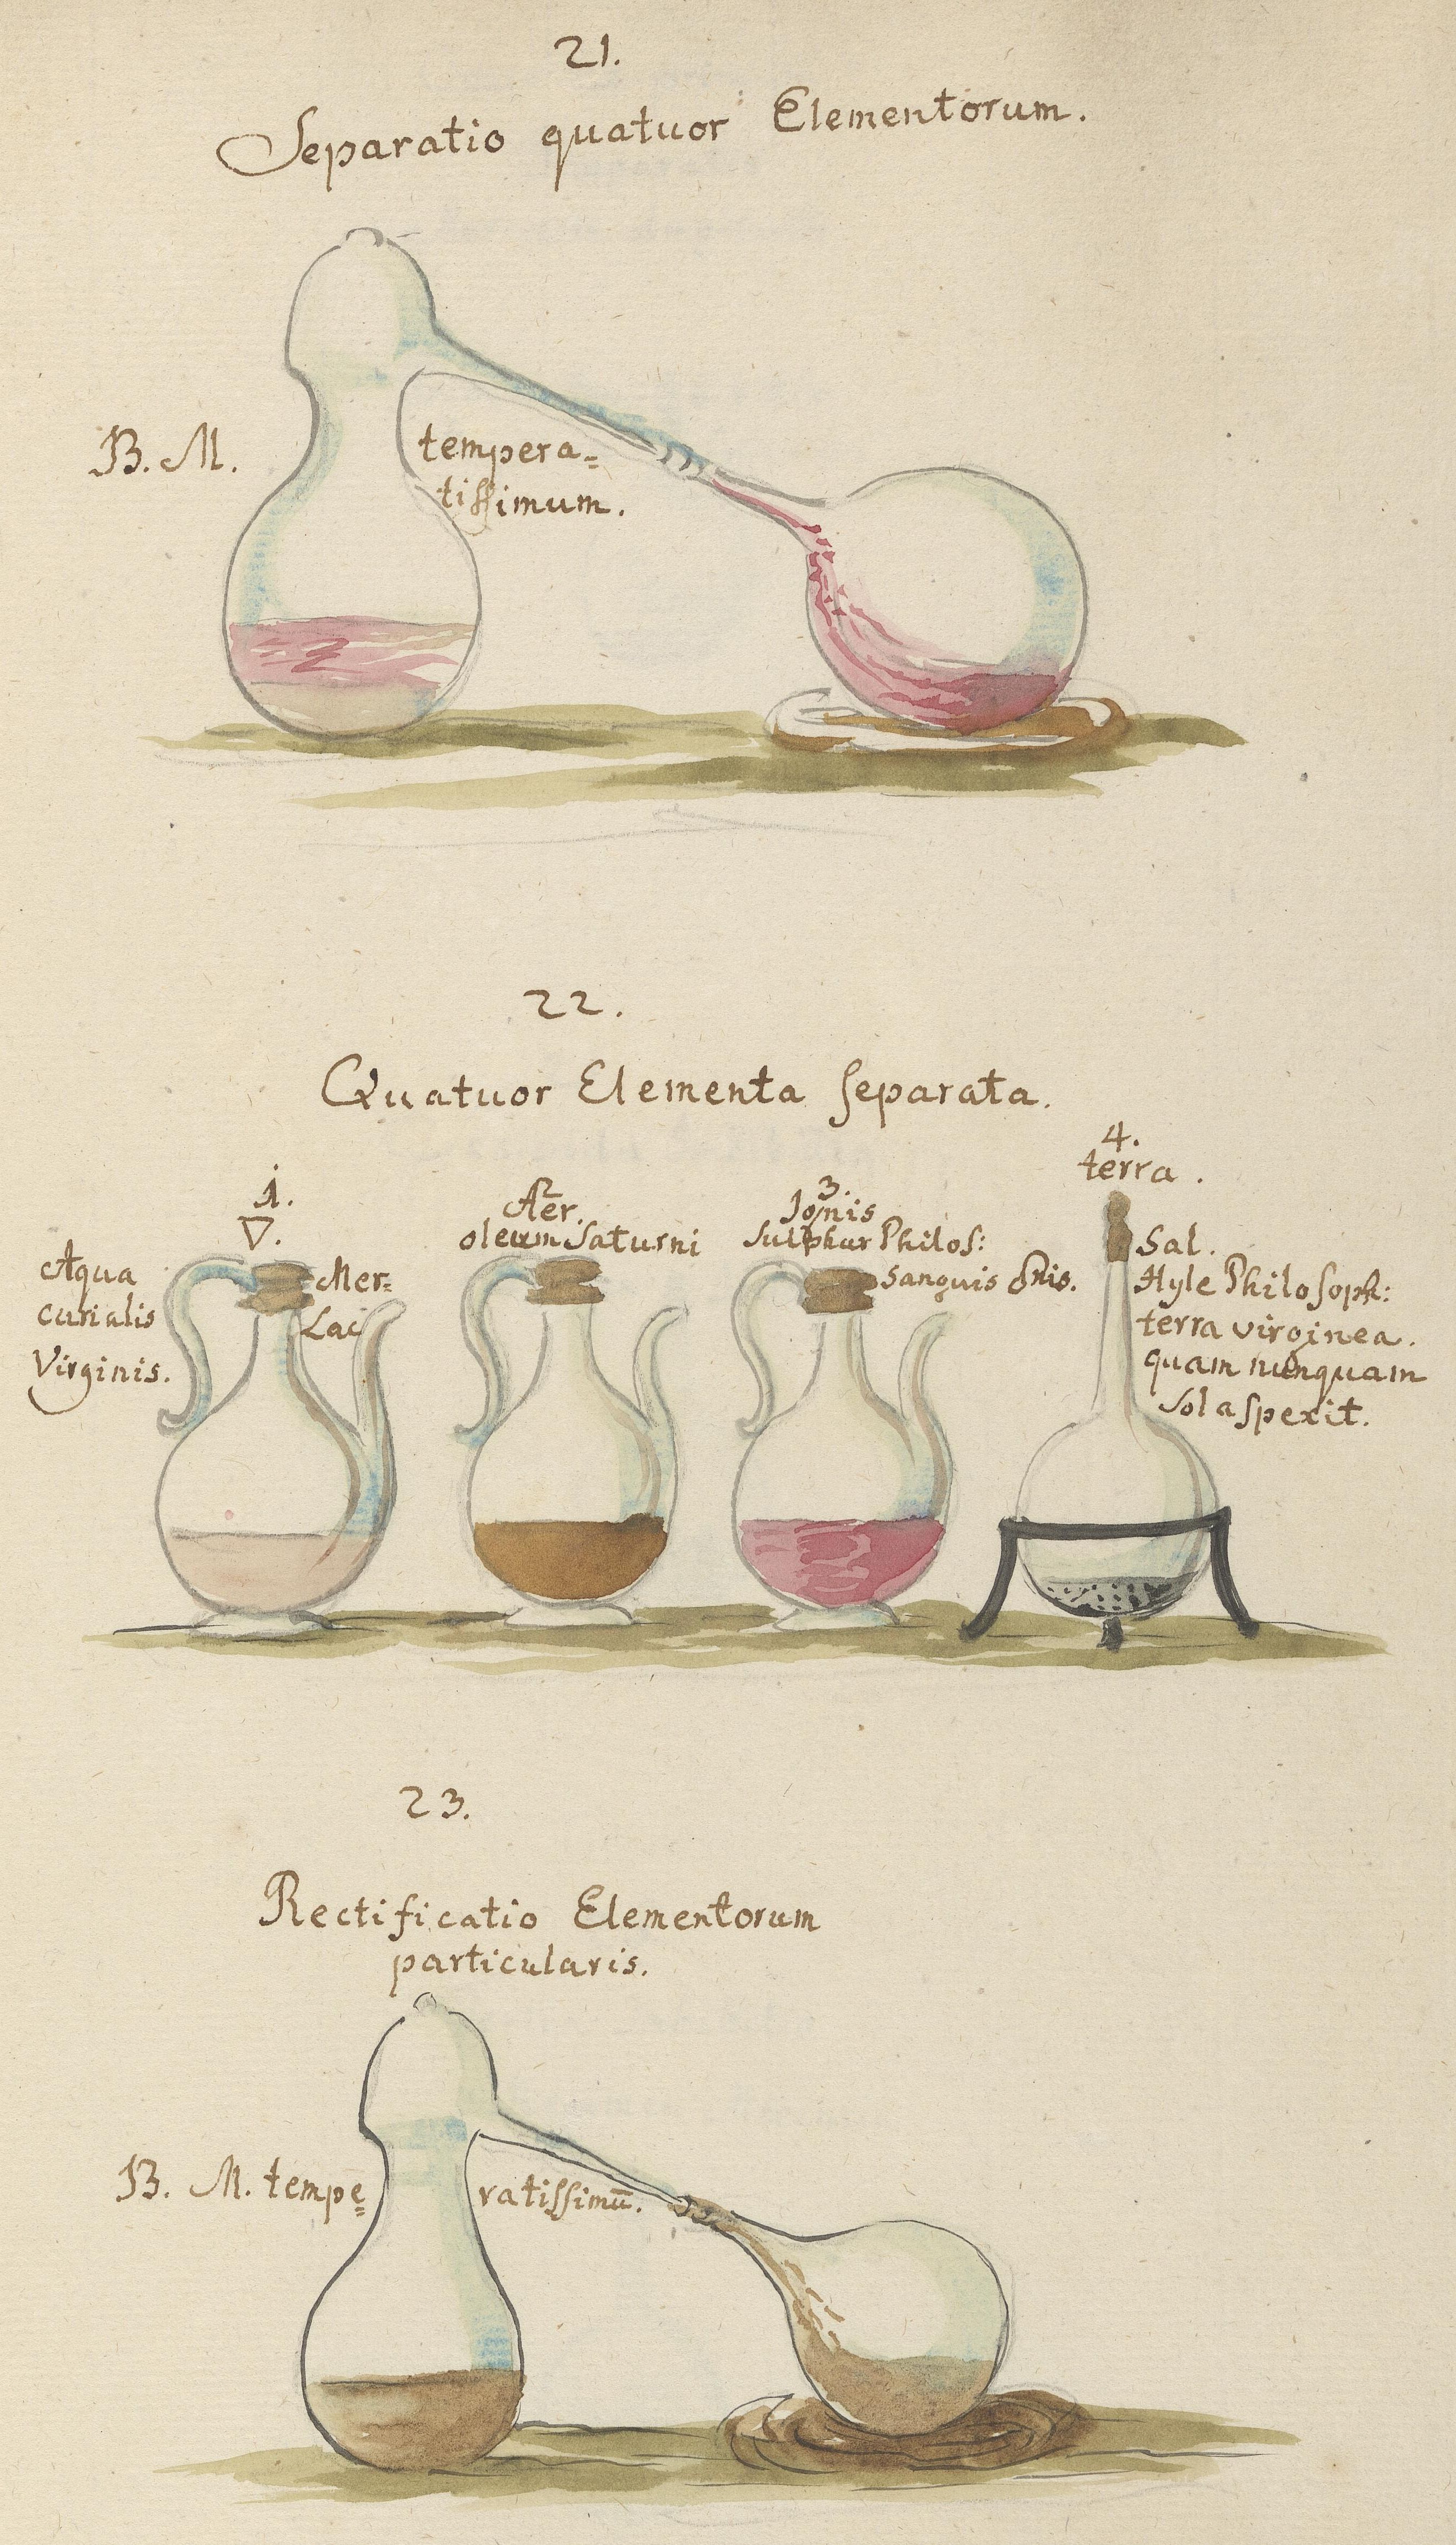 21.
Separatio quatuor Elementorum.
B. M.
tempera=
tiſſimum.
22.
Quatuor Elementa ſeparata.
1.
▽.
Aqua
curialis
Virginis.
Mer=
Lac
2
Aer.
oleum Saturni
3.
Ignis
Sulphur Philoſ:
Sanguis
4.
terra.
Sal.
Hyle Philoſoph:
terra virginea.
quam nunquam
Sol aſpexit.
23.
Rectificatio Elementorum
particularis.
B. M. tempe=
ratiſſimū.